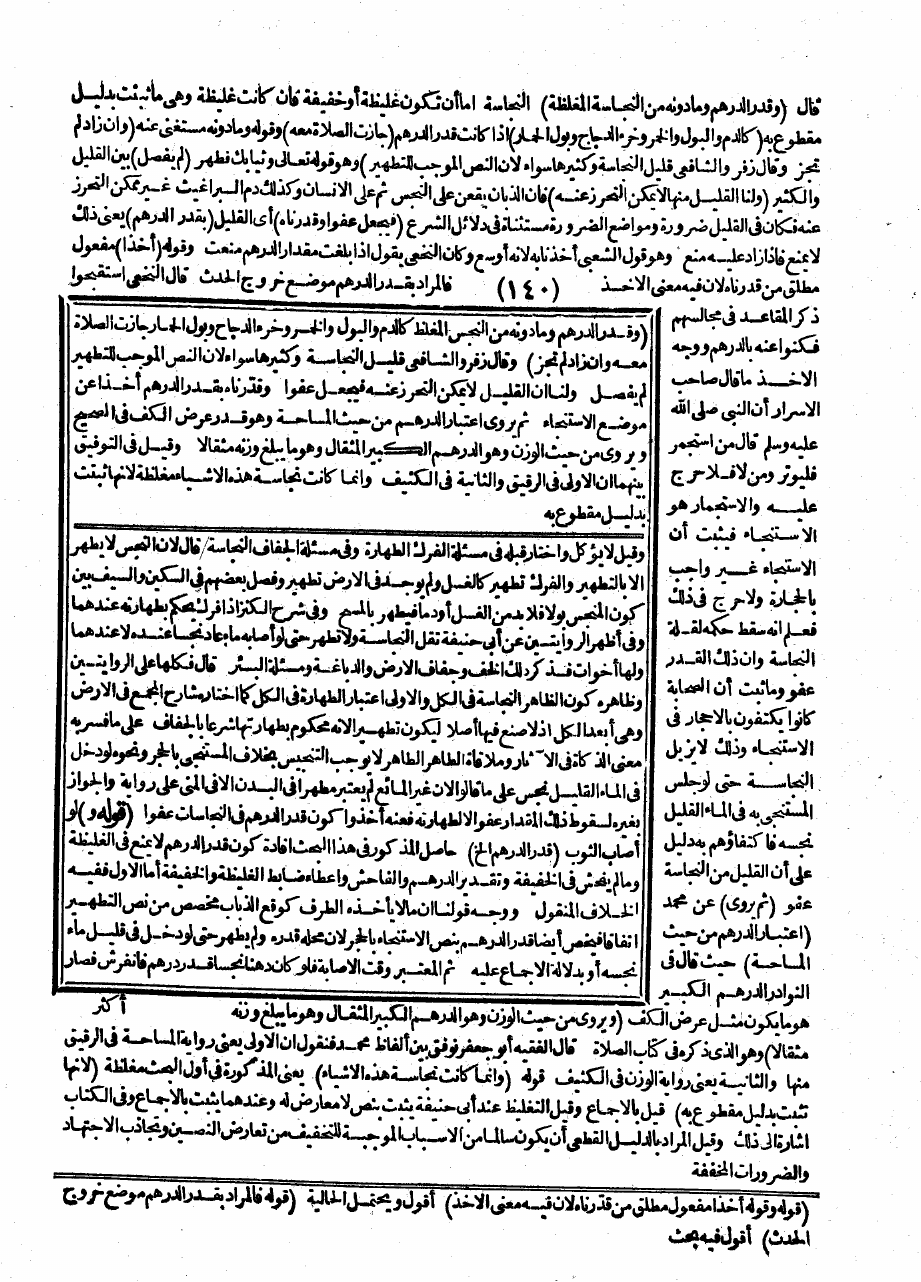 قال (وقدر الدرهم وما دونه من النجاسة المغلظة) النجاسة اما أن تكون غليظة أو خفيفة فان كانت غليظة وهى ما ثبتت بدليل
مقطوع به (كالدم والبول والخمر وخرء الدجاج وبول الحمار) اذا كانت قدر الدرهم (جازت الصلاة معه) وقوله وما دونه مستغنى عنه (وان زاد لم
تجز) وقال زفر والشافعى قليل النجاسة وكثيرها سواء لان النص الموجب للتطهير) وهو قوله تعالى وثيابك فطهر (لم يفصل) بين القليل
والكثير (ولنا القليل منها لا يمكن التحرز عنه) فان الذباب يقعن على النجس ثم على الانسان وكذلك دم البراغيث غير ممكن التحرز
عنه فكان فى القليل ضرورة ومواضع الضرورة مستثناة فى دلائل الشرع (فيجعل عفوا وقدرناه) أى القليل (بقدر الدرهم) يعنى ذلك
لا يمنع فاذا زاد عليه منع وهو قول الشعبى أخذنا به لانه أوسع وكان النخعى يقول اذا بلغت مقدار الدرهم منعت وقوله (أخذا) مفعول
مطلق من قدرناه لان فيه معنى الاخذ (١٤٠) فالمراد بقدر الدرهم موضع خروج الحدث قال النخعى استقبحوا
ذكر المقاعد فى مجالسهم
فكنوا عنه بالدرهم ووجه
الاخذ ما قال صاحب
الاسرار أن النبى صلى الله
عليه وسلم قال من استجمر
فليوتر ومن لا فلا حرج
عليه والاستجمار هو
الاستنجاء فيثبت أن
الاستنجاء غير واجب
بالحجارة ولا حرج فى ذلك
فعلم انه سقط حكمه لقلة
النجاسة وان ذلك القدر
عفو وما ثبت أن الصحابة
كانوا يكتفون بالاحجار فى
الاستنجاء وذلك لا يزيل
النجاسة حتى لو جلس
المستنجى به فى الماء القليل
نجسه فاكتفاؤهم به دليل
على أن القليل من النجاسة
عفو (ثم يروى) عن محمد
(اعتبار الدرهم من حيث
المساحة) حيث قال فى
النوادر الدرهم الكبير
(وقدر الدرهم وما دونه من النجس المغلظ كالدم والبول والخمر وخرء الدجاج وبول الحمار جازت الصلاة
معه وان زاد لم تجز) وقال زفر والشافعى قليل النجاسة وكثيرها سواء لان النص الموجب للتطهير
لم يفصل ولنا ان القليل لا يمكن التحرز عنه فيجعل عفوا وقدرناه بقدر الدرهم أخذا عن
موضع الاستنجاء ثم يروى اعتبار الدرهم من حيث المساحة وهو قدر عرض الكف فى الصحيح
ويروى من حيث الوزن وهو الدرهم الكبير المثقال وهو ما يبلغ وزنه مثقالا وقيل فى التوفيق
بينهما ان الاولى فى الرقيق والثانية فى الكثيف وانما كانت نجاسة هذه الاشياء مغلظة لانها ثبتت
بدليل مقطوع به
وقيل لا يؤكل واختار قبله فى مسئلة الفرك الطهارة وفى مسئلة الجفاف النجاسة/ قال لان النجس لا يطهر
الا بالتطهير والفرك تطهير كالغسل ولم يوجد فى الارض تطهير وفصل بعضهم فى السكين والسيف بين
كون المنجس بولا فلا بد من الغسل أو دما فيطهر بالمسح وفى شرح الكنز اذا فرك يحكم بطهارته عندهما
وفى أظهر الروايتين عن أبى حنيفة تقل النجاسة ولا تطهر حتى لو أصابه ماء عاد نجسا عنده لا عندهما
ولها أخوات فذكر ذلك الخلف وجفاف الارض والدباغة ومسئلة البئر قال فكلها على الروايتين
وظاهره كون الظاهر النجاسة فى الكل والاولى اعتبار الطهارة فى الكل كما اختاره شارح المجمع فى الارض
وهى أبعد الكل اذ لا صنع فيها أصلا ليكون تطهيرا لانه محكوم بطهارتها شرعا بالجفاف على ما فسر به
معنى الذكاة فى الآثار وملاقاة الطاهر الطاهر لا توجب التنجيس بخلاف المستنجى بالحجر ونحوه لو دخل
فى الماء القليل نجس على ما قالوا لان غير المائع لم يعتبر مطهرا فى البدن الا فى المنى على رواية والجواز
بغيره لسقوط ذلك المقدار عفوا لا لطهارته فعنه أخذوا كون قدر الدرهم فى النجاسات عفوا (قوله و) لو
أصاب الثوب (قدر الدرهم الخ) حاصل المذكور فى هذا البحث افادة كون قدر الدرهم لا يمنع فى الغليظة
وما لم يفحش فى الخفيفة وتقدير الدرهم والفاحش واعطاء ضابط الغليظة والخفيفة أما الاول ففيه
الخلاف المنقول ووجه قولنا ان ما لا يأخذه الطرف كوقع الذباب مخصص من نص التطهير
اتفاقا فيخص أيضا قدر الدرهم بنص الاستنجاء بالحجر لان محله قدره ولم يطهر حتى لو دخل فى قليل ماء
نجسه أو بدلالة الاجماع عليه ثم المعتبر وقت الاصابة فلو كان دهنا نجسا قدر درهم فانفرش فصار
أكثر
هو ما يكون مثل عرض الكف (ويروى من حيث الوزن وهو الدرهم الكبير المثقال وهو ما يبلغ وزنه
مثقالا) وهو الذى ذكره فى كتاب الصلاة قال الفقيه أبو جعفر نوفق بين ألفاظ محمد فنقول ان الاولى يعنى رواية المساحة فى الرقيق
منها والثانية يعنى رواية الوزن فى الكثيف قوله (وانما كانت نجاسة هذه الاشياء) يعنى المذكورة فى أول البحث مغلظة (لانها
تثبت بدليل مقطوع به) قيل بالاجماع وقيل التغليظ عند أبى حنيفة يثبت بنص لا معارض له وعندهما يثبت بالاجماع وفى الكتاب
اشارة الى ذلك وقيل المراد بالدليل القطعى أن يكون سالما من الاسباب الموجبة للتخفيف من تعارض النصين وتجاذب الاجتهاد
والضرورات المخففة
(قوله وقوله أخذا مفعول مطلق من قدرناه لان فيه معنى الاخذ) أقول ويحتمل الحالية (قوله فالمراد بقدر الدرهم موضع خروج
الحدث) أقول فيه بحث